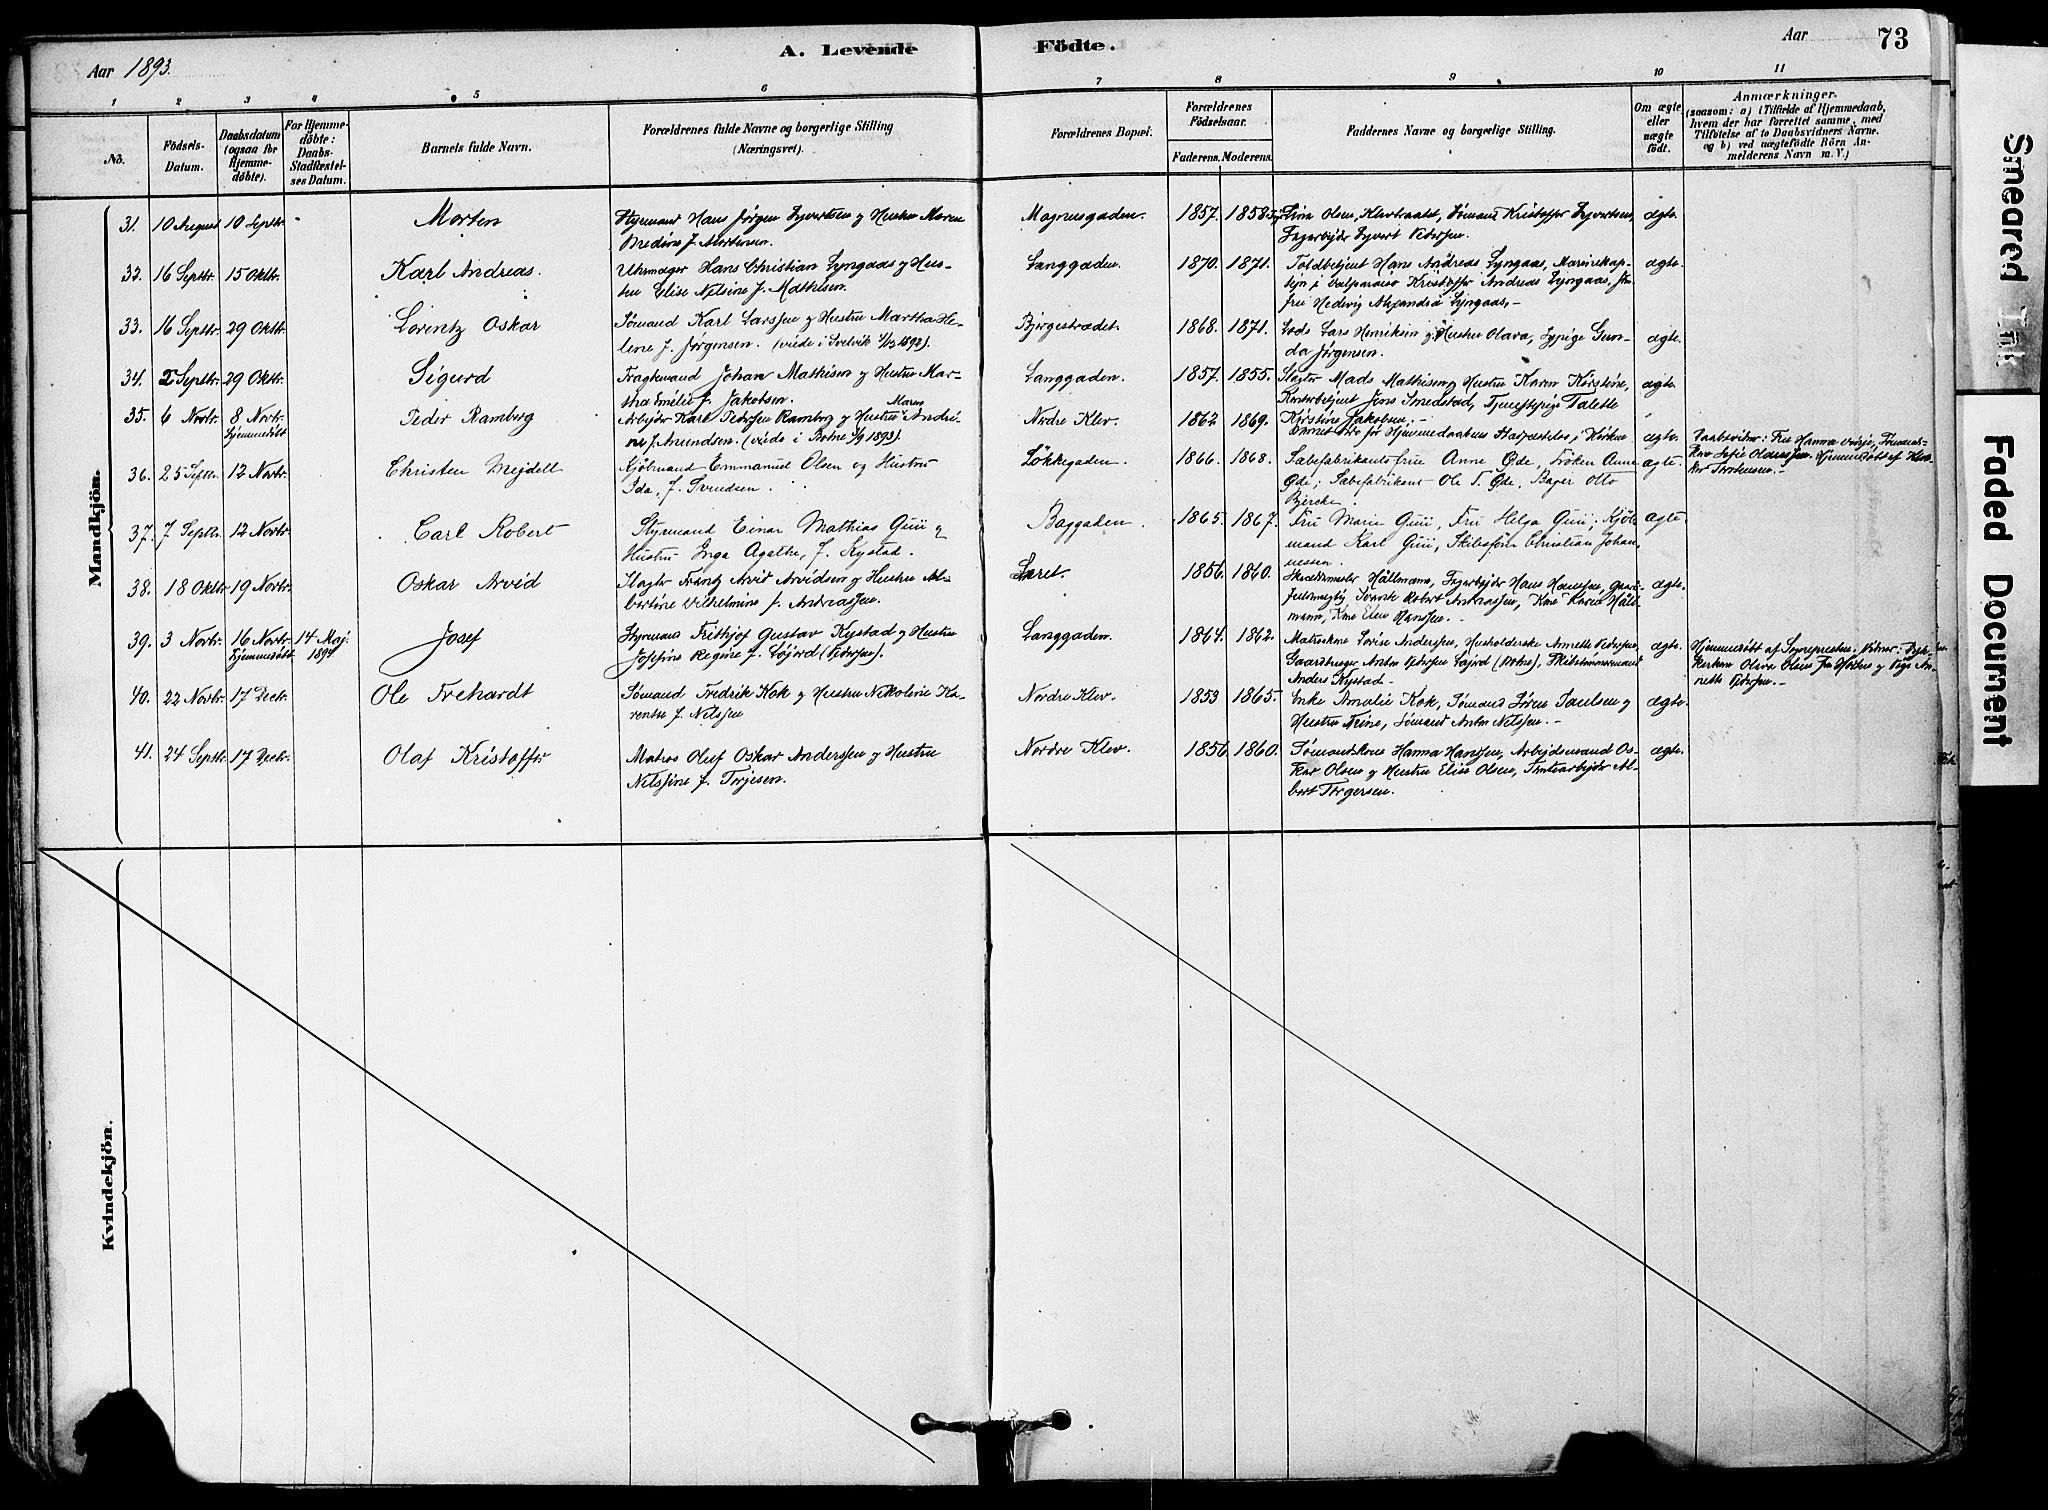 Aar 1893.
A. Levende
Födte.
Aar
73
1 2 3 4 5 6 7 8 9 10 11
No.
Födsels-Datum.
Daabsdatum (ogsaa for Hjemme-döbte).
For Hjemme-döbte: Daabs-Stadfæstel-ses Datum.
Barnets fulde Navn.
Forældrenes fulde Navne og borgerlige Stilling (Næringsvei).
Forældrenes Bopæl.
Forældrenes Födselsaar.
Faderens. Moderens.
Faddernes Navne og borgerlige Stilling.
Om ægte eller uægte födt.
Anmærkninger.
(saasom: a) i Tilfælde af Hjemmedaab, hvem der har forrettet samme, med Tilföielse af to Daabsvidners Navne. og b) ved uægtefödte Börn An-melderens Navn m. V.)
Mandkjön.
31. 10 August 10 Septtr. Morten
Styrmand Hans Jørgen Syvertsen og Hustru Maren
Medine f. Mortensen.
Magnusgaden. 1857. 1858. Olsen, Sømand Kristoffer Syvertsen, ægte.
Syvert Pedersen.
32. 16 Septtr. 15 Oktbr. Karl Andreas.
Uhrmager Hans Christian Lyngaas og Hus-
tru Elise Nilsine f. Mathisen.
Langgaden. 1870. 1871. Toldbetjent Hans Andreas Lyngaas, Marinekap-
tejn i Valparaiso Kristoffer Andreas Lyngaas, Jom-
fru Hedvig Alexandra Lyngaas.-
ægte.
33. 16 Septtr. 29 Oktbr. Lorentz Oskar
Sømand Karl Larssen og Hustru Martha He-
lene f. Jørgensen. (viede i Svelvik 1892).
Bjergestrædet. 1868. 1871. Lods Lars Henriksen og Hustru Olava, Sypige Gun-
da Jørgensen.
ægte.
34. 2 Septtr. 29 Oktbr. Sigurd
Fragtemand Johan Mathisen og Hustru Mar-
tha Emelie f. Jakobsen.
Langgaden. 1857. 1855. Slagter Mads Mathisen og Hustru Karen Kirstine,
Kontorbetjent Jens Smedstad, Tjenestepige Talette
Kirstine Jakobsen.-
ægte.
35. 6 Novbr. 8 Novbr. Hjemmedöbt Peder Ramberg
Arbejder Karl Pedersen Ramberg og Hustru Maren Andri-
ne f. Amundsen. (viede i Botne 1893).
Nordre Klev. 1862 1869. før Hjemmedaabens Stadfæstelse i Kirken ægte.
Daabsvidner: Fru Hanna
36. 25 Septtr. 12 Novbr. Christen Mejdell
Kjöbmand Emmanuel Olsen og Hustru
Ida, f. Svendsen.
Løkkegaden. 1866. 1868. Sæbefabrikantfrue Anne Øde, Frøken Anne
Øde; Sæbefabrikant Ole T. Øde, Bager Otto
Bjercke.
ægte.
37. 7 Septtr. 12 Novbr. Carl Robert
Styrmand Einar Mathias Guii og
Hustru Inga Agathe, f. Kystad.
Baggaden. 1865. 1867. Fru Marie Guii, Fru Helga Guii; Kjöb-
mand Karl Guii, Skibsfører Christian Johan-
nessen.
ægte.
38. 18 Oktbr. 19 Novbr. Oskar Arvid
Slagter Frantz Arvid Arvidsen og Hustru Al-
bertine Vilhelmine f. Andreassen.
Læret. 1856. 1860. Skræddermester Hällmann, Hans Hanssen,
Robert Andreassen, Kone Karen Häll-
mann, Kone Elen Hanssen.-
ægte.
39. 3 Novbr. 16 Novbr. Hjemmedöbt 14 Maj 1894 Josef
Styrmand Frithjof Gustav Kystad og Hustru
Josefine Regine f. Løjord (Pedersen).
Langgaden. 1864. 1862. Matroskone Lovise Anderssen, Husholderske Annette Pedersen,
Gaardbruger Anton Pedersen (Botne), Skibstömmermand
Anders Kystad.-
ægte.
Hjemmedöbt af Sognepresten. Vidner:
Olava Olsen og Pige An-
nette Pedersen.-
40. 22 Novbr. 17 Decbr. Ole Frehardt
Sømand Fredrik Kok og Hustru Nikoline Ka-
rentse f. Nilssen
Nordre Klev. 1853 1865. Enke Amalie Kok, Sømand Søren Paulsen og
Hustru Trine, Sømand Anton Nilssen.-
ægte.
41. 24 Septtr. 17 Decbr. Olaf Kristoffer
Matros Oluf Oskar Anderssen og Hustru
Nilssine f. Torjesen.
Nordre Klev. 1856 1860. Sømandskone Hanna Hanssen, Arbejdsmand Os-
kar Olsen og Hustru Elise Olsen, Tomtearbejder Al-
bert Torgersen.
ægte.
Kvindekjön.
Smeared Ink
Faded Document